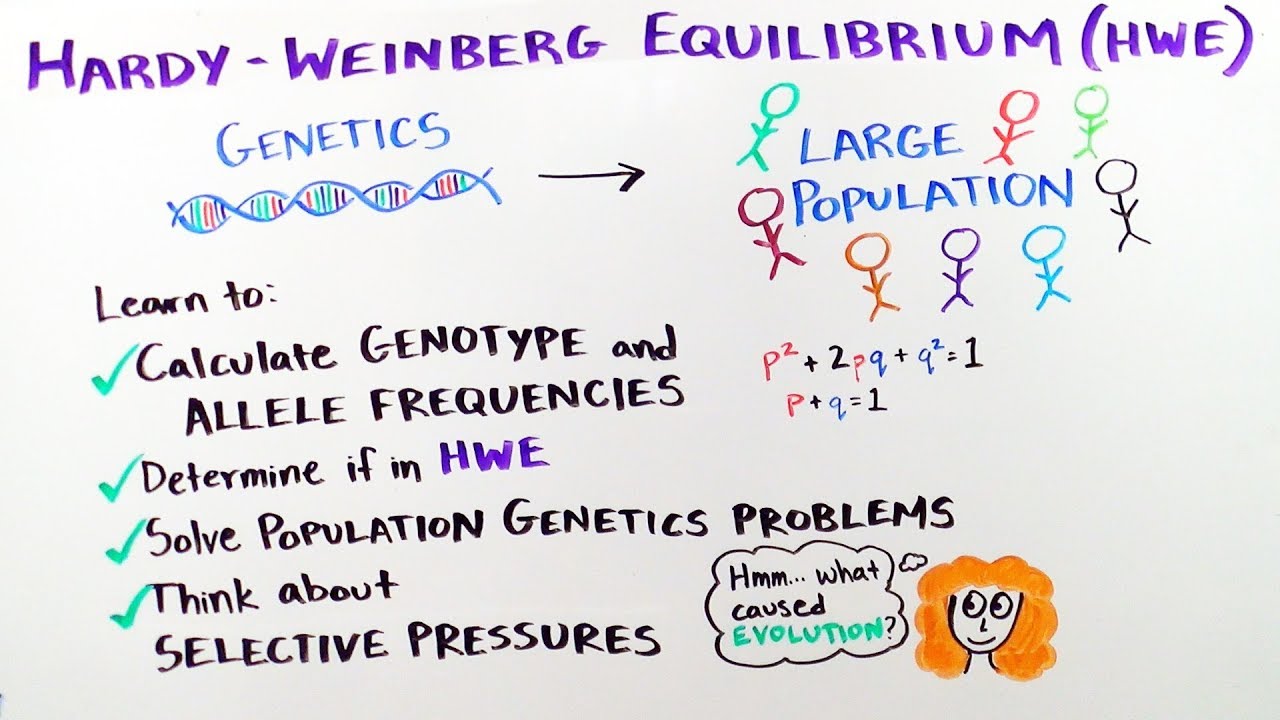 HARDY - WEINBERG EQUILIBRIUM (HWE)
GENETICS
LARGE
POPULATION
Learn to:
✓ Calculate GENOTYPE and
ALLELE FREQUENCIES
✓ Determine if in HWE
✓ Solve POPULATION GENETICS PROBLEMS
✓ Think about
SELECTIVE PRESSURES
p² + 2pq + q² = 1
p + q = 1
Hmm... what
caused
EVOLUTION?